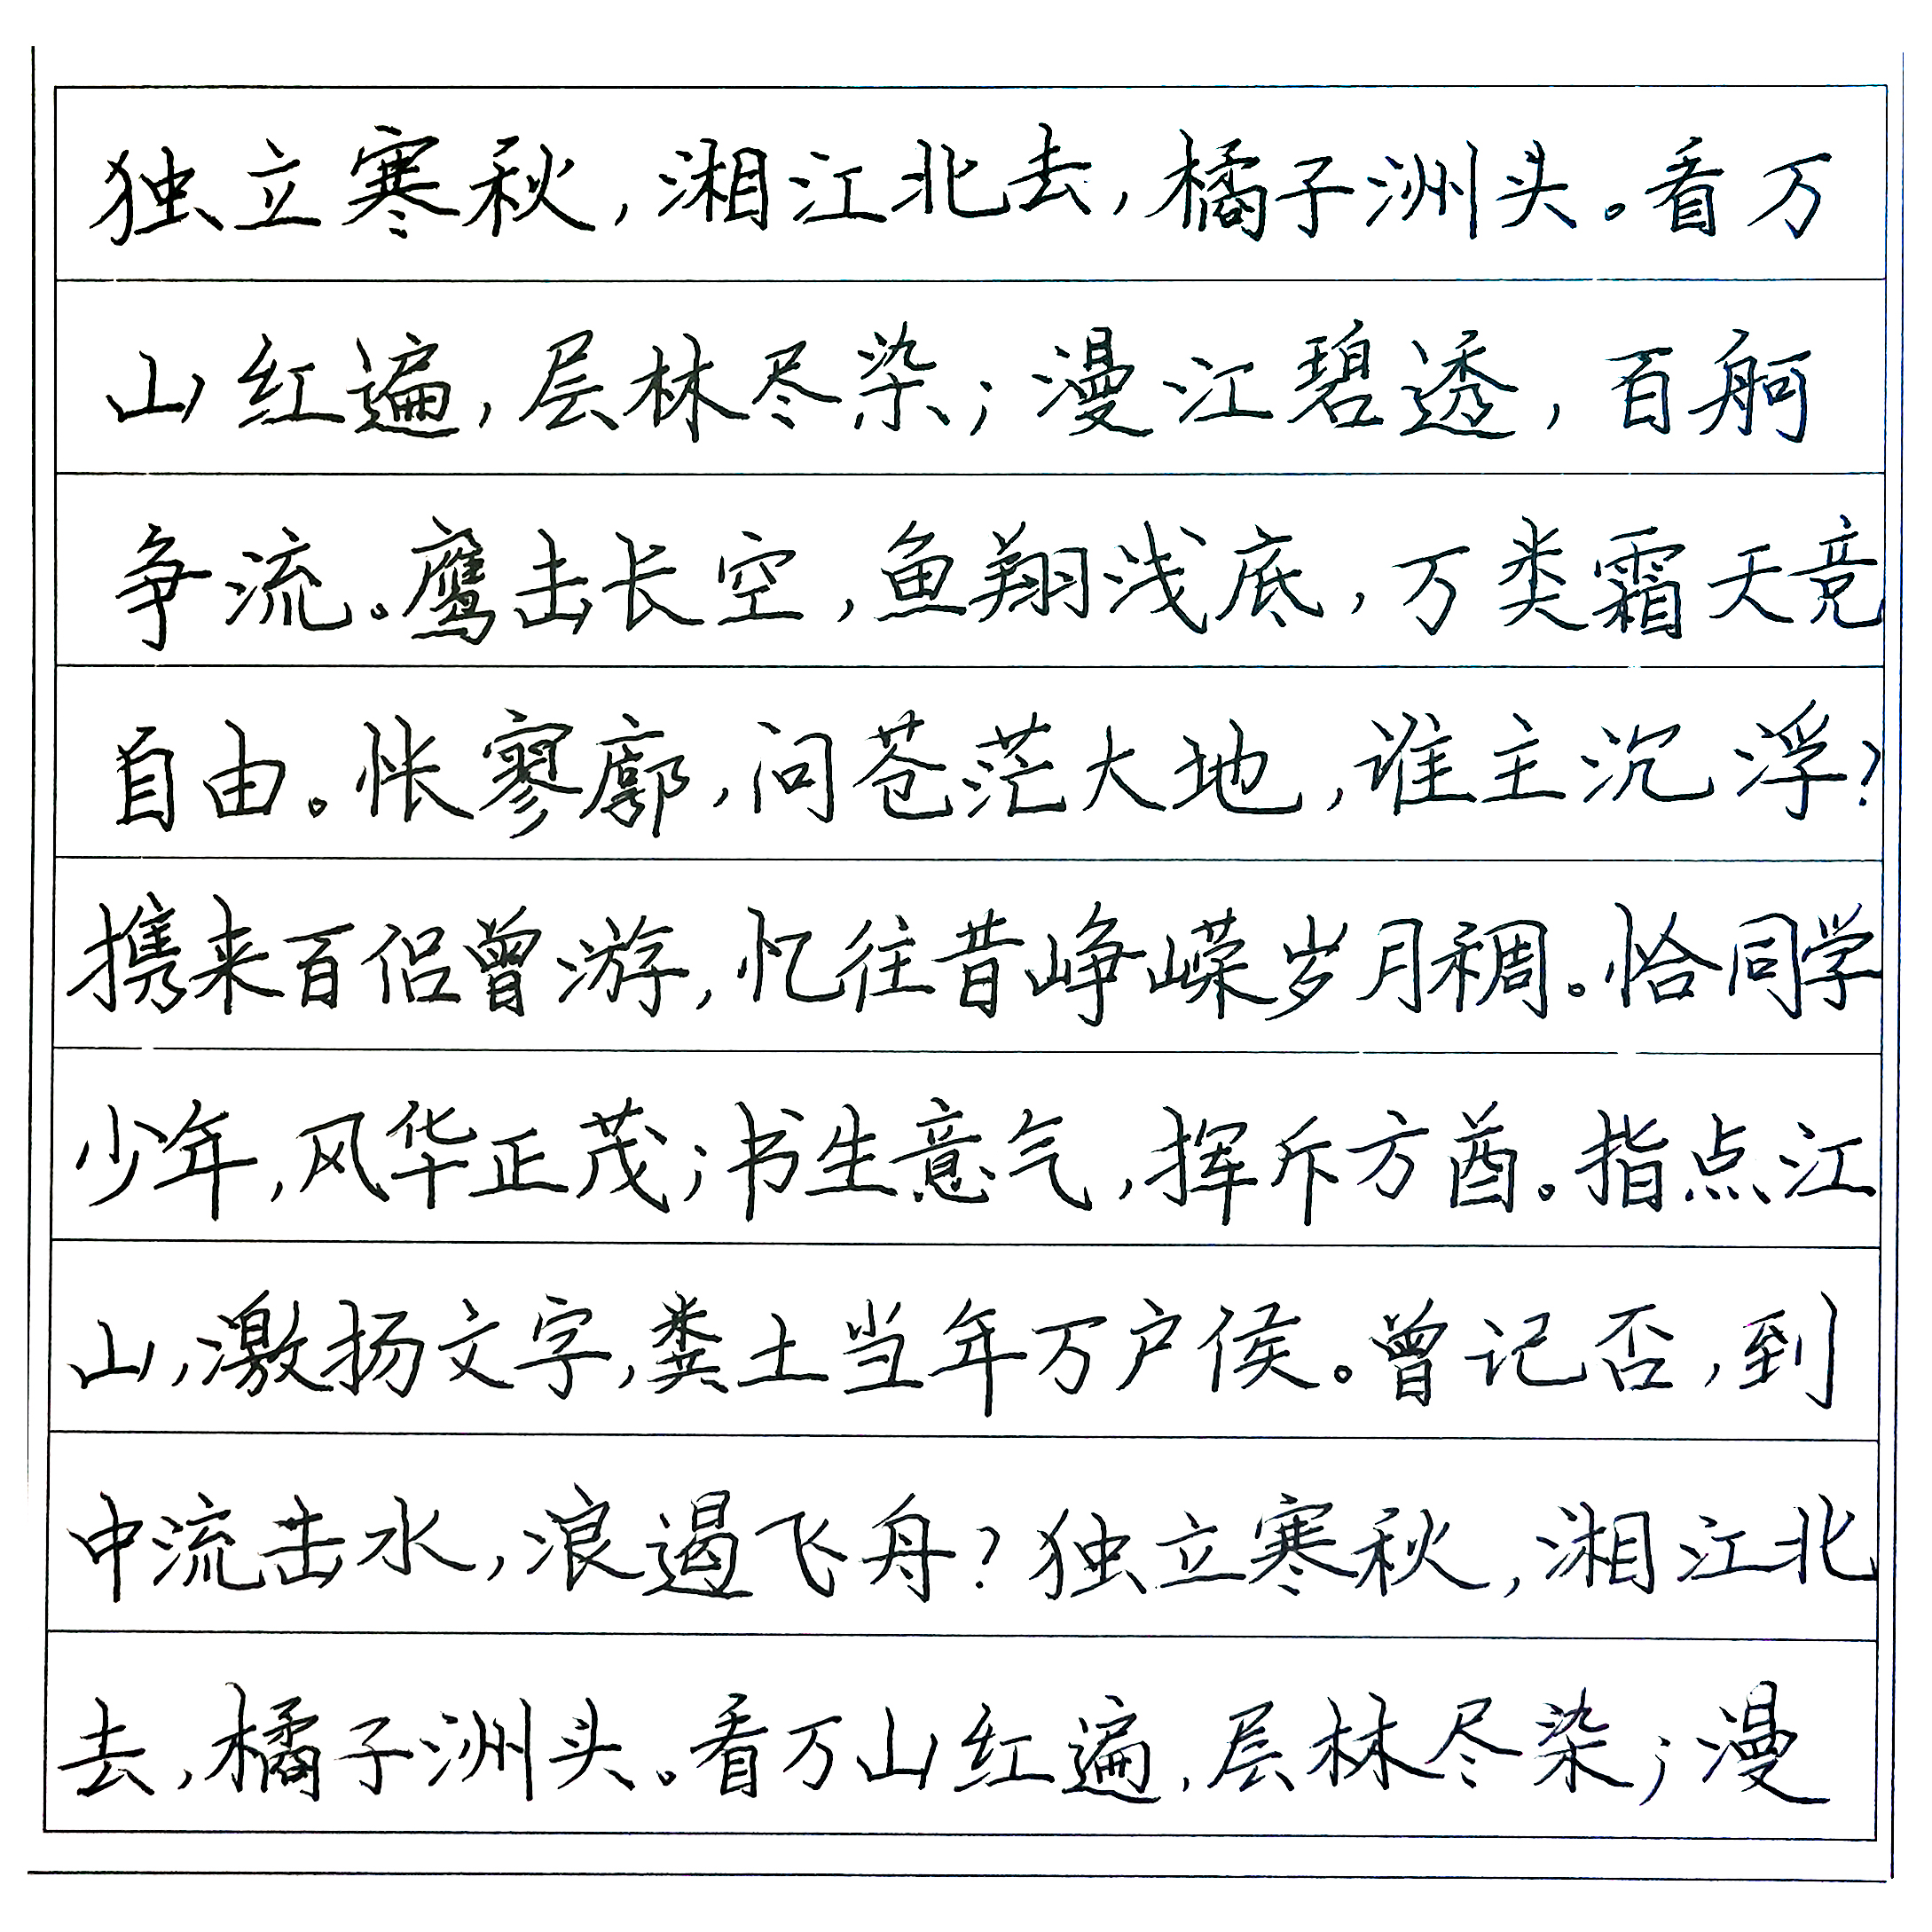 独立寒秋,湘江北去,橘子洲头。看万
山红遍,层林尽染;漫江碧透,百舸
争流。鹰击长空,鱼翔浅底,万类霜天竞
自由。怅寥廓,问苍茫大地,谁主沉浮?
携来百侣曾游,忆往昔峥嵘岁月稠。恰同学
少年,风华正茂;书生意气,挥斥方遒。指点江
山,激扬文字,粪土当年万户侯。曾记否,到
中流击水,浪遏飞舟?独立寒秋,湘江北
去,橘子洲头。看万山红遍,层林尽染;漫